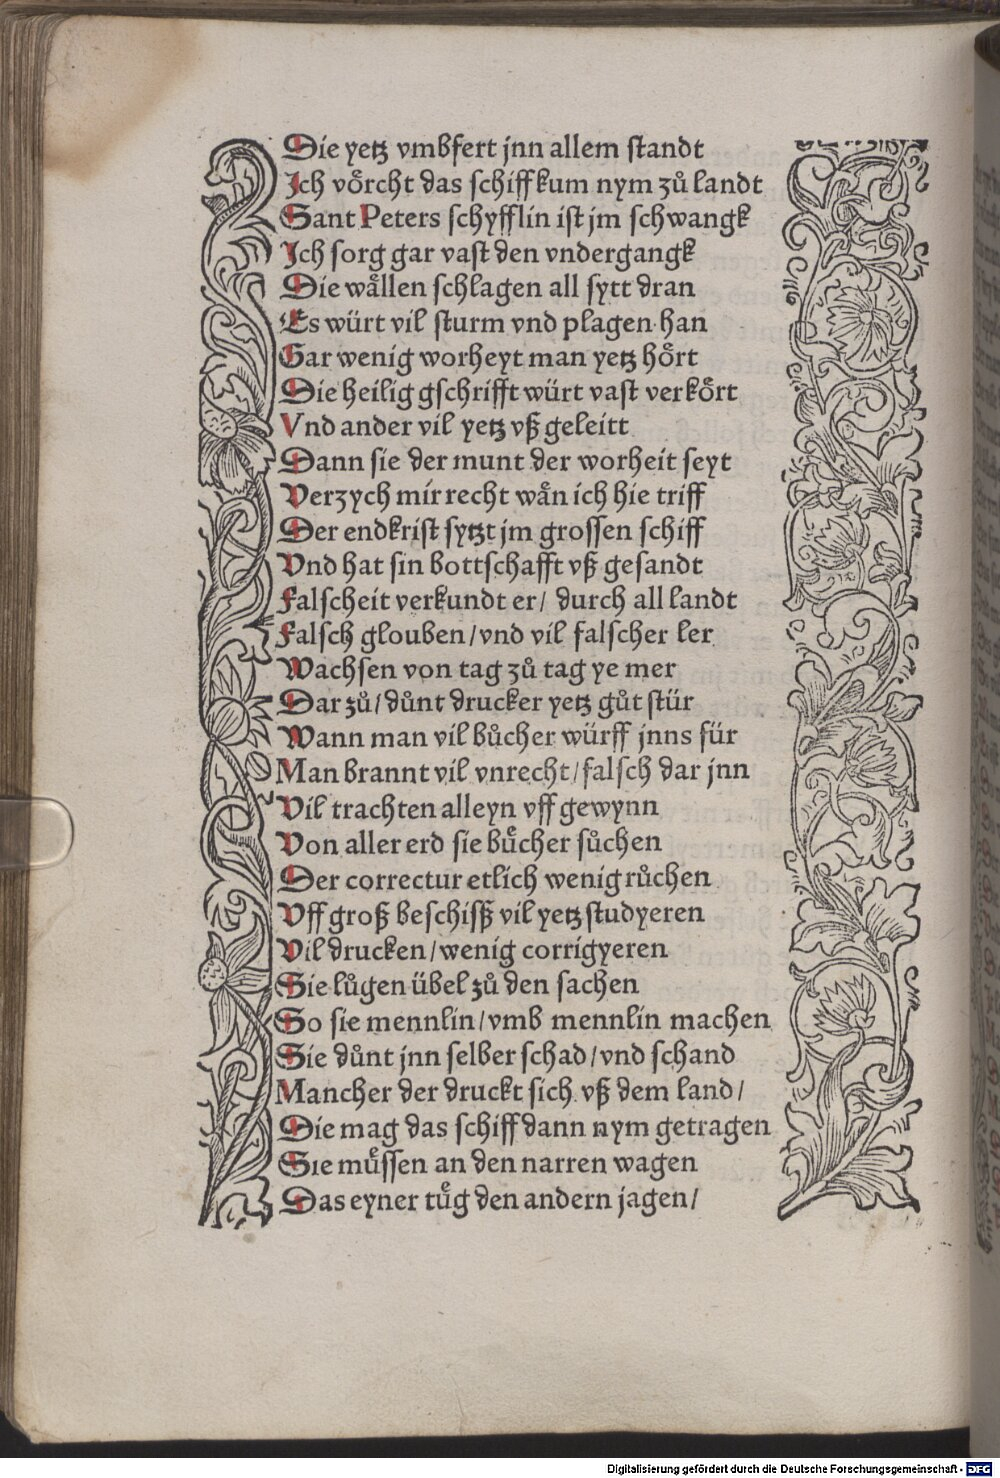 Die yetz vmbfert jnn allem standt
Jch voͤrcht das schiff kum nym zuͦ landt
Sant Peters schyfflin ist jm schwangk
Jch sorg gar vast den vndergangk
Die waͤllen schlagen all sytt dran
Es würt vil sturm vnd plagen han
Gar wenig worheyt man yetz hoͤrt
Die heilig gschrifft würt vast verkoͤrt
Vnd ander vil yetz vß geleitt
Dann sie der munt der worheit seyt
Verzych mir recht waͤn ich hie triff
Der endkrist sytzt jm grossen schiff
Vnd hat sin bottschafft vß gesandt
Falscheit verkundt er/ durch all landt
Falsch glouben/ vnd vil falscher ler
Wachsen von tag zuͦ tag ye mer
Dar zuͦ/ duͦnt drucker yetz guͦt stür
Wann man vil buͤcher würff jnns für
Man brannt vil vnrecht/ falsch dar jnn
Vil trachten alleyn vff gewynn
Von aller erd sie buͤcher suͦchen
Der correctur etlich wenig ruͦchen
Vff groß beschisß vil yetz studyeren
Vil drucken/ wenig corrigyeren
Sie luͦgen übel zuͦ den sachen
So sie mennlin/ vmb mennlin machen
Sie duͦnt jnn selber schad/ vnd schand
Mancher der druckt sich vß dem land/
Die mag das schiff dann nym getragen
Sie muͤssen an den narren wagen
Das eyner tuͤg den andern jagen/
Digitalisierung gefördert durch die Deutsche Forschungsgemeinschaft - DFG